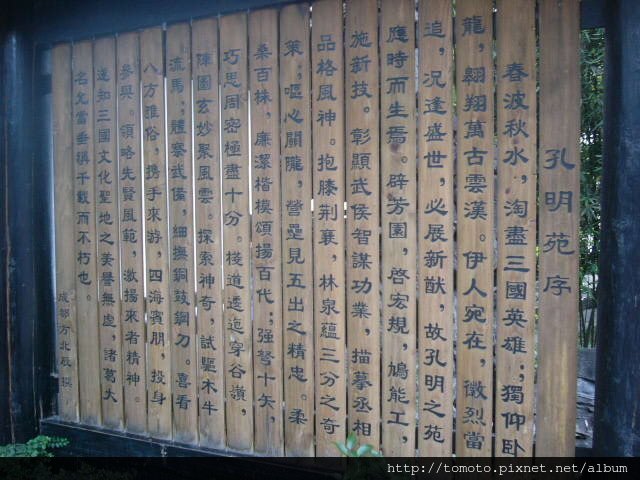 孔明苑序
春波秋水，淘盡三國英雄；獨仰臥
龍，翱翔萬古雲漢。伊人宛在，徽烈當
追，況逢盛世，必展新猷，故孔明之苑
應時而生焉。辟芳園，啓宏規，鳩能工，
施新技。彰顯武侯智謀功業，描摹丞相
品格風神。抱膝荊襄，林泉蘊三分之奇
策，嘔心關隴，營壘見五出之精忠。柔
桑百株，廉潔楷模頌揚百代；強弩十矢，
巧思周密極盡十分。棧道逶迤穿谷嶺，
陣圖玄妙聚風雲。探索神奇，試驅木牛
流馬；體察武備，細撫銅鼓鋼刀。喜看
八方雅俗，攜手來游，四海賓朋，投身
參與。領略先賢風範，激揚來者精神。
遂知三國文化聖地之美譽無虛，諸葛大
名允當垂祺千載而不朽也。
成都方北辰撰
http://tomoto.pixnet.net/album